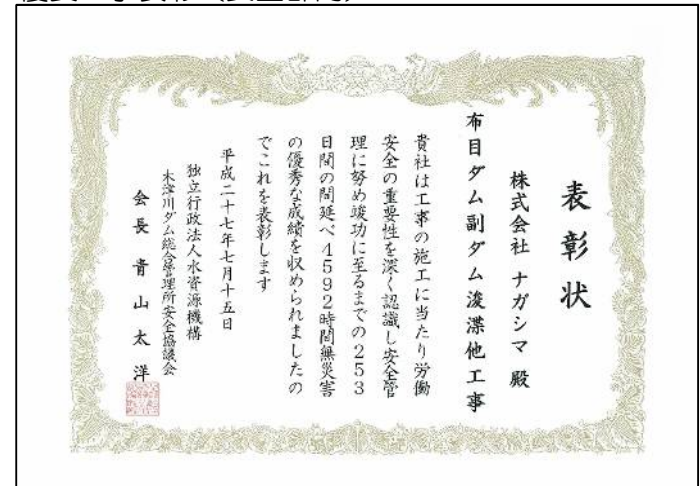 表彰状
株式会社 ナガシマ 殿
布目ダム副ダム浚渫他工事
貴社は工事の施工に当たり労働
安全の重要性を深く認識し安全管
理に努め竣功に至るまでの253
日間の間延べ4592時間無災害
の優秀な成績を収められましたの
でこれを表彰します
平成二十七年七月十五日
独立行政法人水資源機構
木津川ダム総合管理所安全協議会
会長 青山太洋